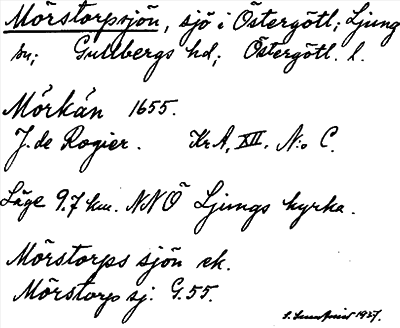 Mörstorpsjön, sjö i Östergötl; Ljung
sn; Gullbergs hd; Östergötl. l.
Mörkån 1655.
J. de Rogier. Kr A, XII, N:o C.
Läge 9.7 km. NNÖ Ljungs kyrka.
Mörstorps sjön ek.
Mörstorp sj. G. 55.
1937.